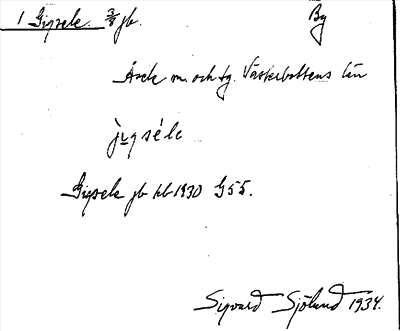 1 Gigsele 3/8 jb.
By
Åsele m. och tg. Västerbottens län
jigséle
Gigsele jb kb 1930 G55.
Sigvard Sjölund 1934.